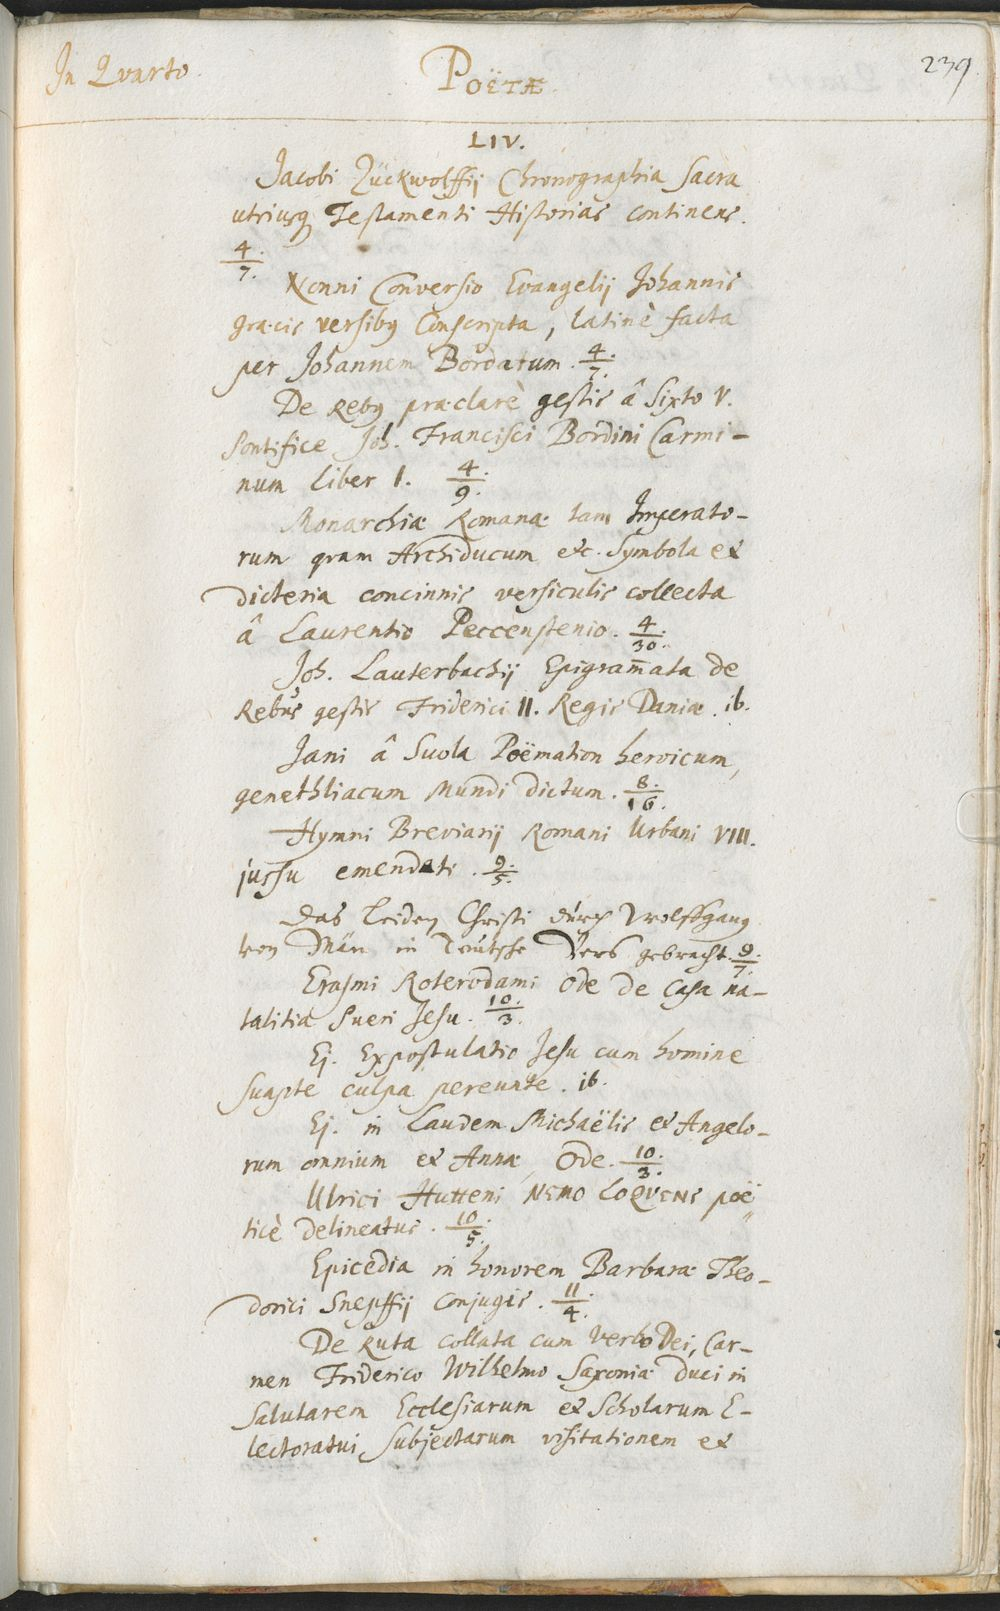 In Qvarto.
POËTÆ.
239.
LIV.
Jacobi Zückwolffij Chronographia Sacra
utriusq Testamenti Historias continens.
4/7.
Nonni Conversio Evangelij Johannis
græcis versibꝰ Conscripta, latinè facta
per Johannem Bordatum. 4/7.
De Rebꝰ præclarè gestis â Sixto V.
Pontifice Joh. Francisci Bordini Carmi-
num Liber 1. 4/9.
Monarchiæ Romanæ tam Imperato-
rum qvam Archiducum etc. Symbola et
dicteria concinnis versiculis collecta
â Laurentio Peccenstenio. 4/30.
Joh. Lauterbachij Epigram̄ata de
Rebus gestis Friderici II. Regis Daniæ. ib.
Jani â Svola Poëmation heroicum,
genethliacum Mundi dictum. 8/16.
Hymni Breviarij Romani Urbani VIII.
jussu emendati. 9/5.
Das Leiden Christi durch Wolffgang
von Män in Teutsche Vers gebracht. 9/7.
Erasmi Roterodami Ode de Casa na-
talitia Pueri Jesu. 10/3.
Ej. Expostulatio Jesu cum homine
suapte culpa pereunte. ib.
Ej. in Laudem Michaëlis et Angelo-
rum omnium et Annæ, Ode. 10/3.
Ulrici Hutteni NEMO LOQVENS poë-
ticè delineatus. 10/5.
Epicedia in honorem Barbaræ Theo-
dorici Snepffij Conjugis. 11/4.
De Ruta collata cum Verbo Dei, Car-
men Friderico Wilhelmo Saxoniæ Duci in
Salutarem Ecclesiarum et Scholarum E-
lectoratui subjectarum visitationem et